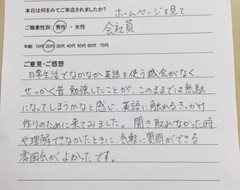 本日は何をみてご来店されましたか? ホームページを見て
ご職業性別 男性・女性 会社員
年齢 10代 20代 30代 40代 50代 60代 70代
ご意見・ご感想
日常生活でなかなか英語を使う機会がなく、
せっかく昔勉強したことが、このままでは無駄
になってしまうかなと感じ、英語に触れるきっかけ
作りのために来てみました。聞き取れなかった時
や理解できなかったときに気軽に質問ができる
雰囲気がよかったです。